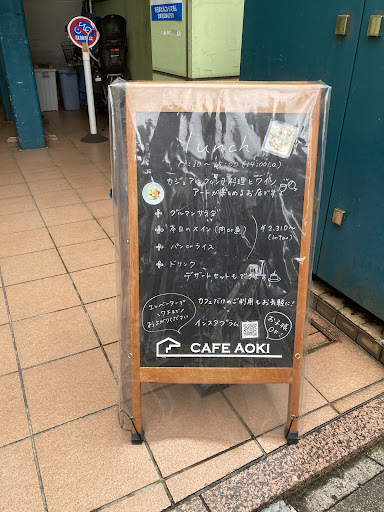 lunch
11:30~15:00(14:00L.O)
カジュアルフレンチ料理とワイン、
アートが楽しめるお店です
グルマンサラダ
本日のメイン(肉or魚)
¥2,310~
(in tax)
パンorライス
ドリンク
デザートセットもできます
カフェバーのご利用もお気軽に!
エレベーターで
お上がりください
インスタグラム
お子様
OK!
CAFE AOKI